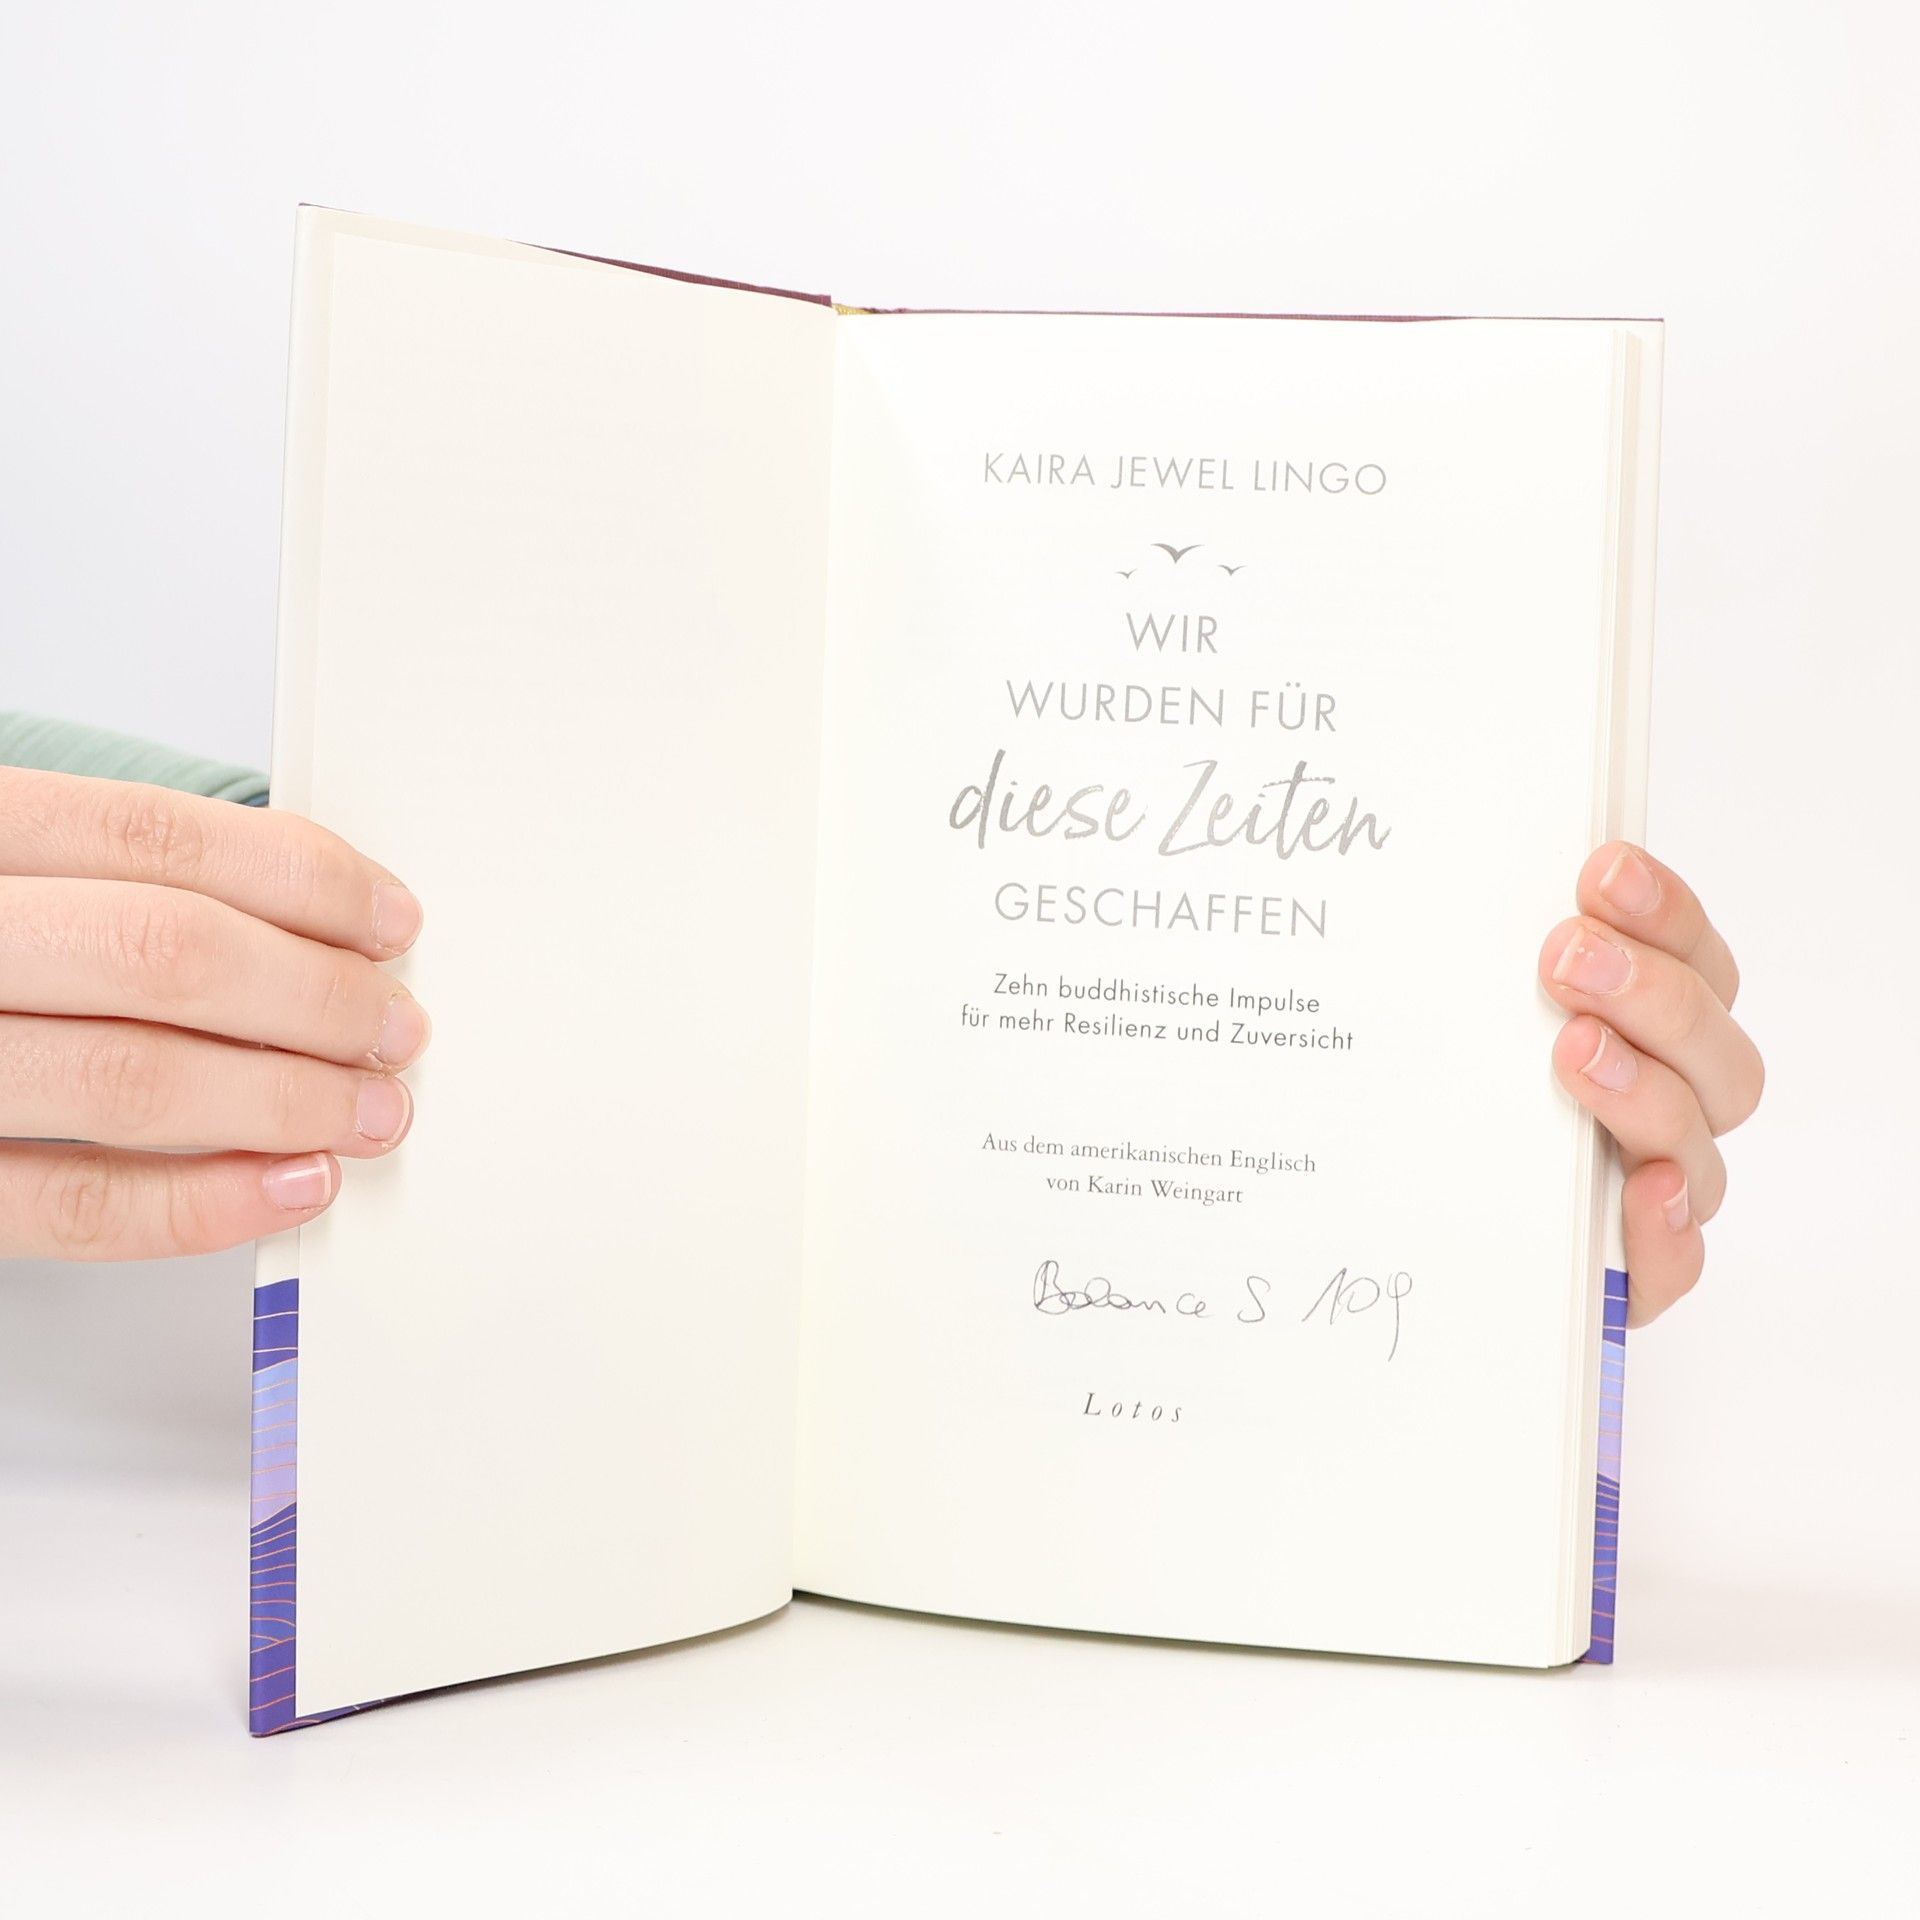 KAIRA JEWEL LINGO
WIR
WURDEN FÜR
diese Zeiten
GESCHAFFEN
Zehn buddhistische Impulse
für mehr Resilienz und Zuversicht
Aus dem amerikanischen Englisch
von Karin Weingart
Balance S 109
Lotos